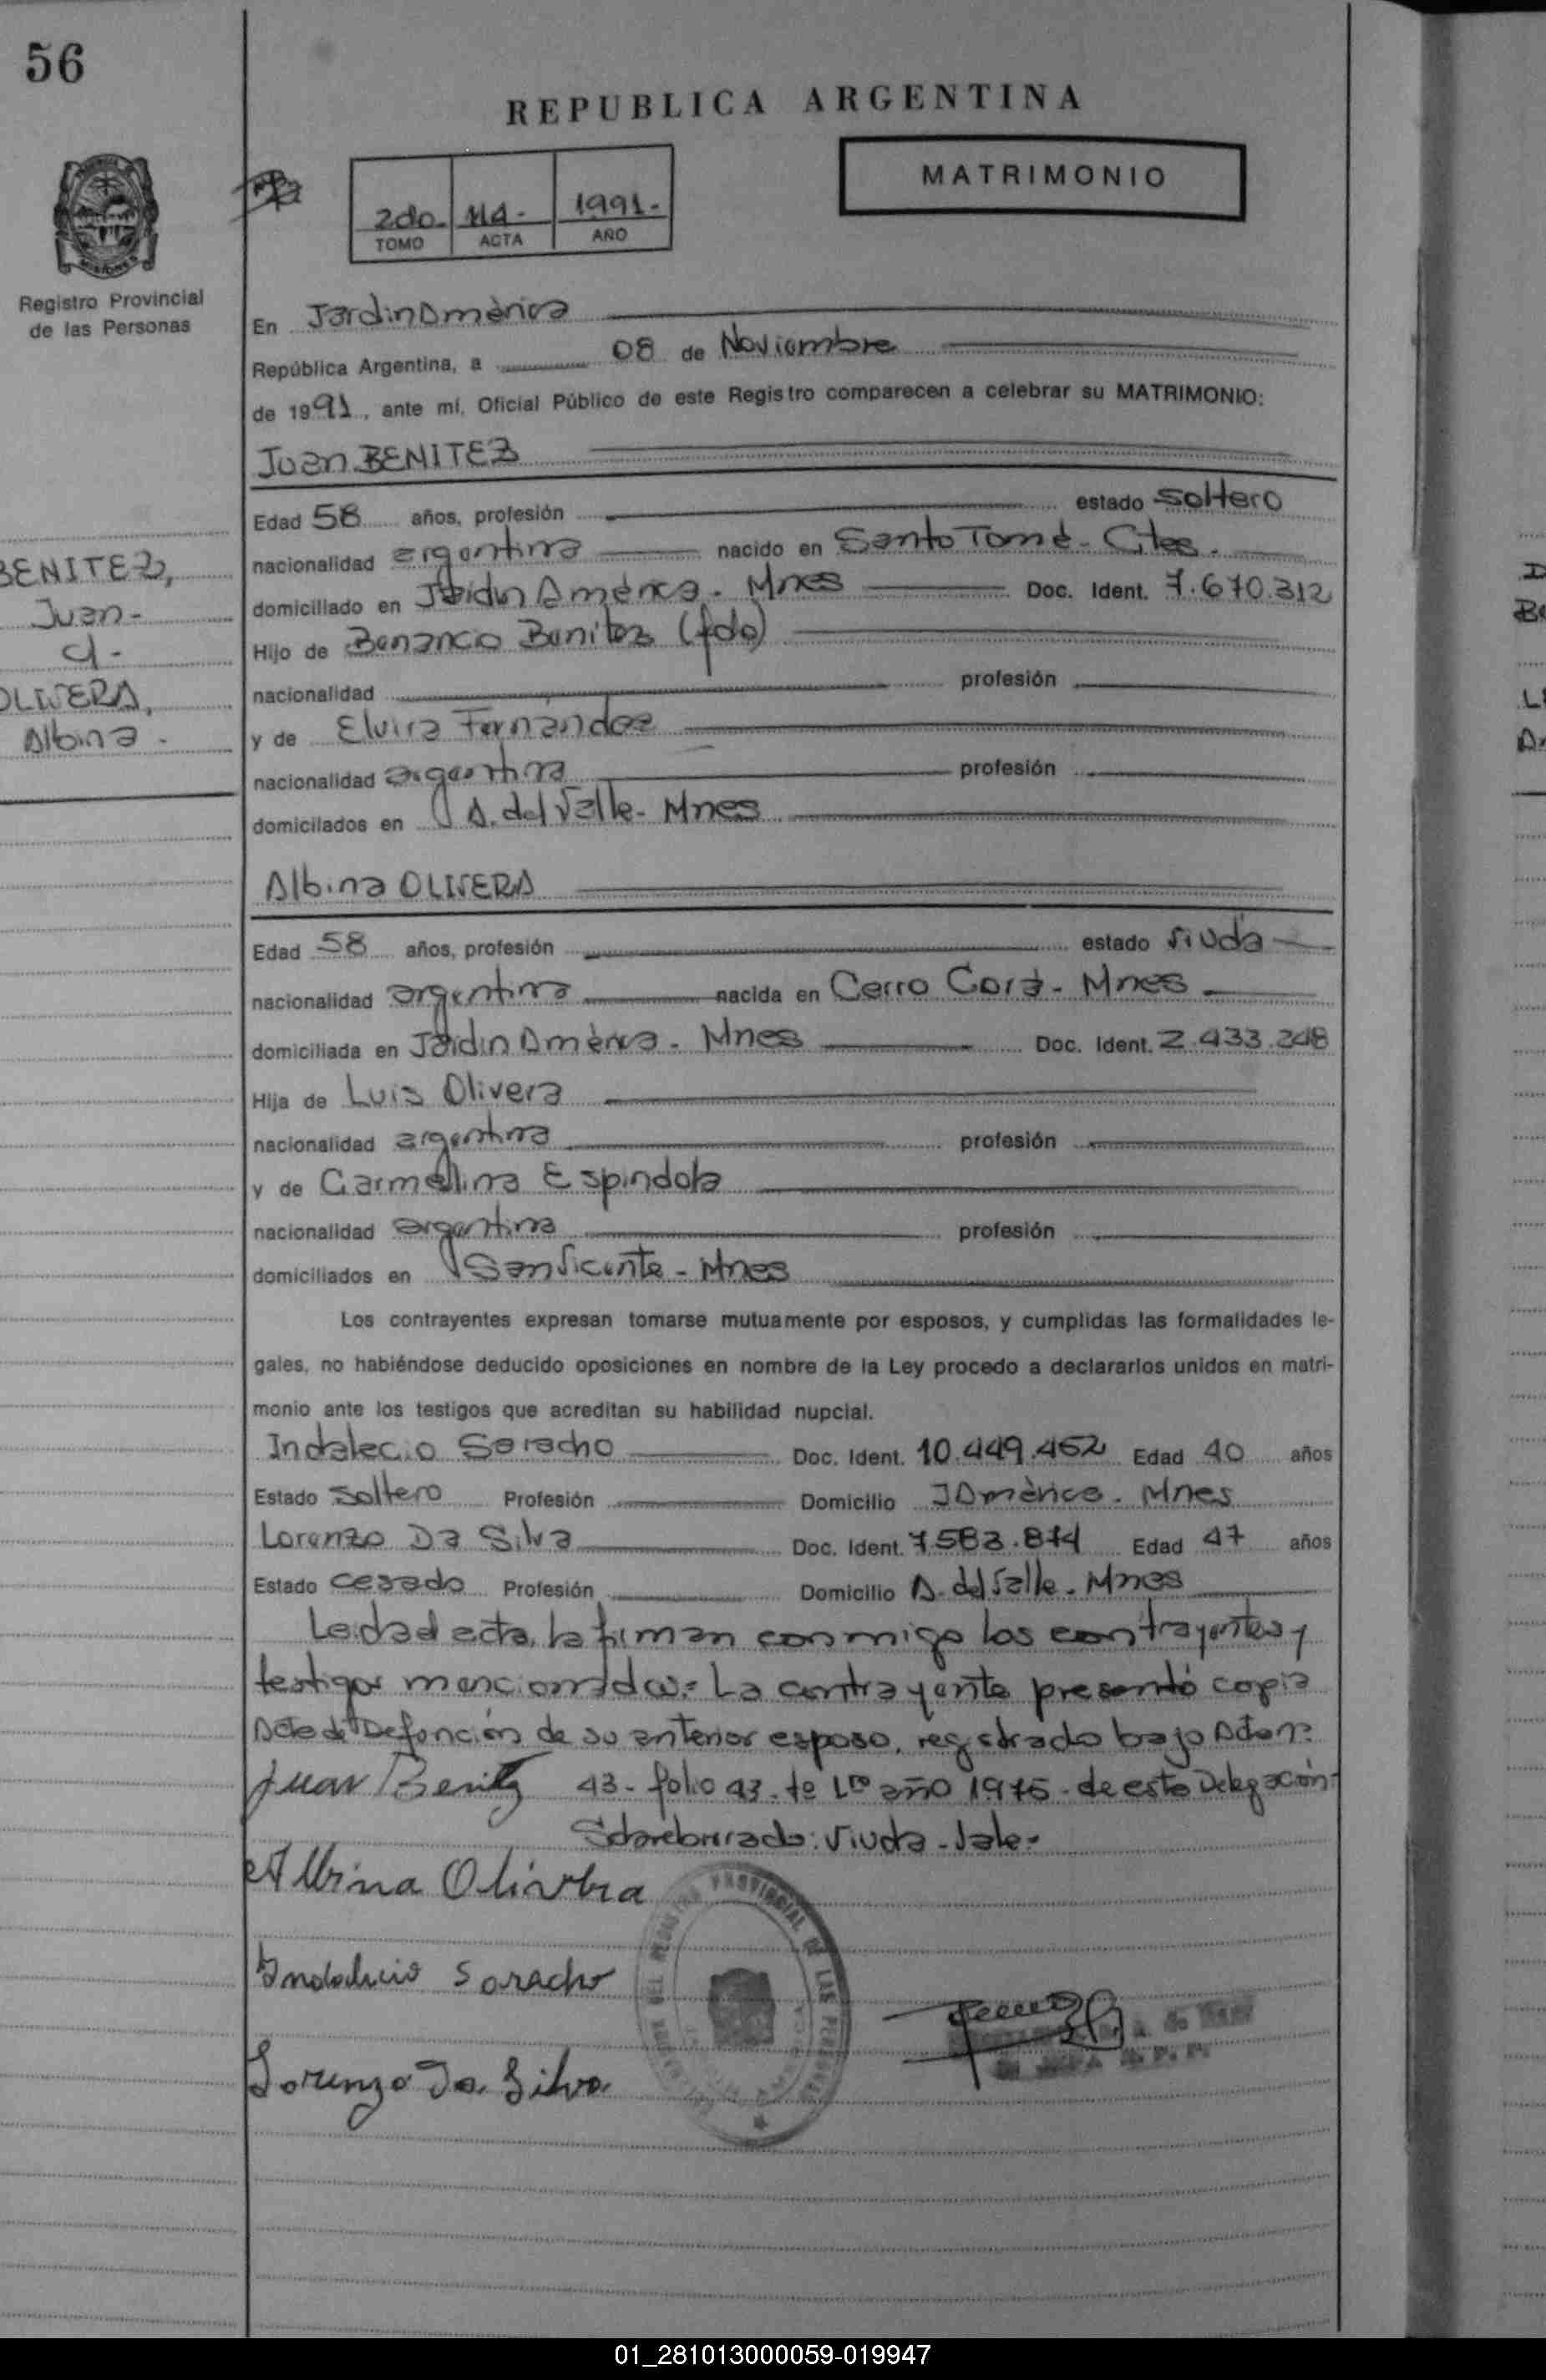 56
REPUBLICA ARGENTINA
MATRIMONIO
2do. 114- 1991-
TOMO ACTA AÑO
Registro Provincial
de las Personas
En JardinAmèrica
República Argentina, a 08 de Noviembre
de 1991, ante mí, Oficial Público de este Registro comparecen a celebrar su MATRIMONIO:
Juan BENITEZ
Edad 58 años, profesión estado soltero
BENITEZ,
Juan-
c/-
OLIVERA,
Albina-
nacionalidad argentina nacido en Santo Tomé- Ctes.
domiciliado en Jardin Amèrica. Mnes Doc. Ident. 7.670.312
Hijo de Benancio Benitez (fdo)
nacionalidad profesión
y de Elvira Fernández
nacionalidad argentina profesión
domicilados en A. del Valle- Mnes
Albina OLIVERA
Edad 58 años, profesión estado viuda
nacionalidad argentina nacida en Cerro Corá- Mnes
domiciliada en Jardin Amèrica. Mnes Doc. Ident. 2.433.248
Hija de Luis Olivera
nacionalidad argentina profesión
y de Carmelina Espindola
nacionalidad argentina profesión
domiciliados en San Vicente - Mnes
Los contrayentes expresan tomarse mutuamente por esposos, y cumplidas las formalidades le-
gales, no habiéndose deducido oposiciones en nombre de la Ley procedo a declararlos unidos en matri-
monio ante los testigos que acreditan su habilidad nupcial.
Indalecio Saracho Doc. Ident. 10.449.452 Edad 40 años
Estado soltero Profesión Domicilio JAmèrica. Mnes
Lorenzo Da Silva Doc. Ident. 7583.874 Edad 47 años
Estado casado Profesión Domicilio A. del Valle. Mnes
Leida el acta, la firman conmigo los contrayentes y
testigos mencionados.= La contrayente presentó copia
Acta de Defunción de su anterior esposo, registrado bajo Acta nº
Juan Benitez 43- folio 43. tº 1ro año 1975- de esta Delegación-
Sobreborrado: Viuda - Vale-
Albina Olivera
Indalecio Saracho
Lorenzo Da Silva
REGISTRO PROVINCIAL DE LAS PERSONAS
01_281013000059-019947